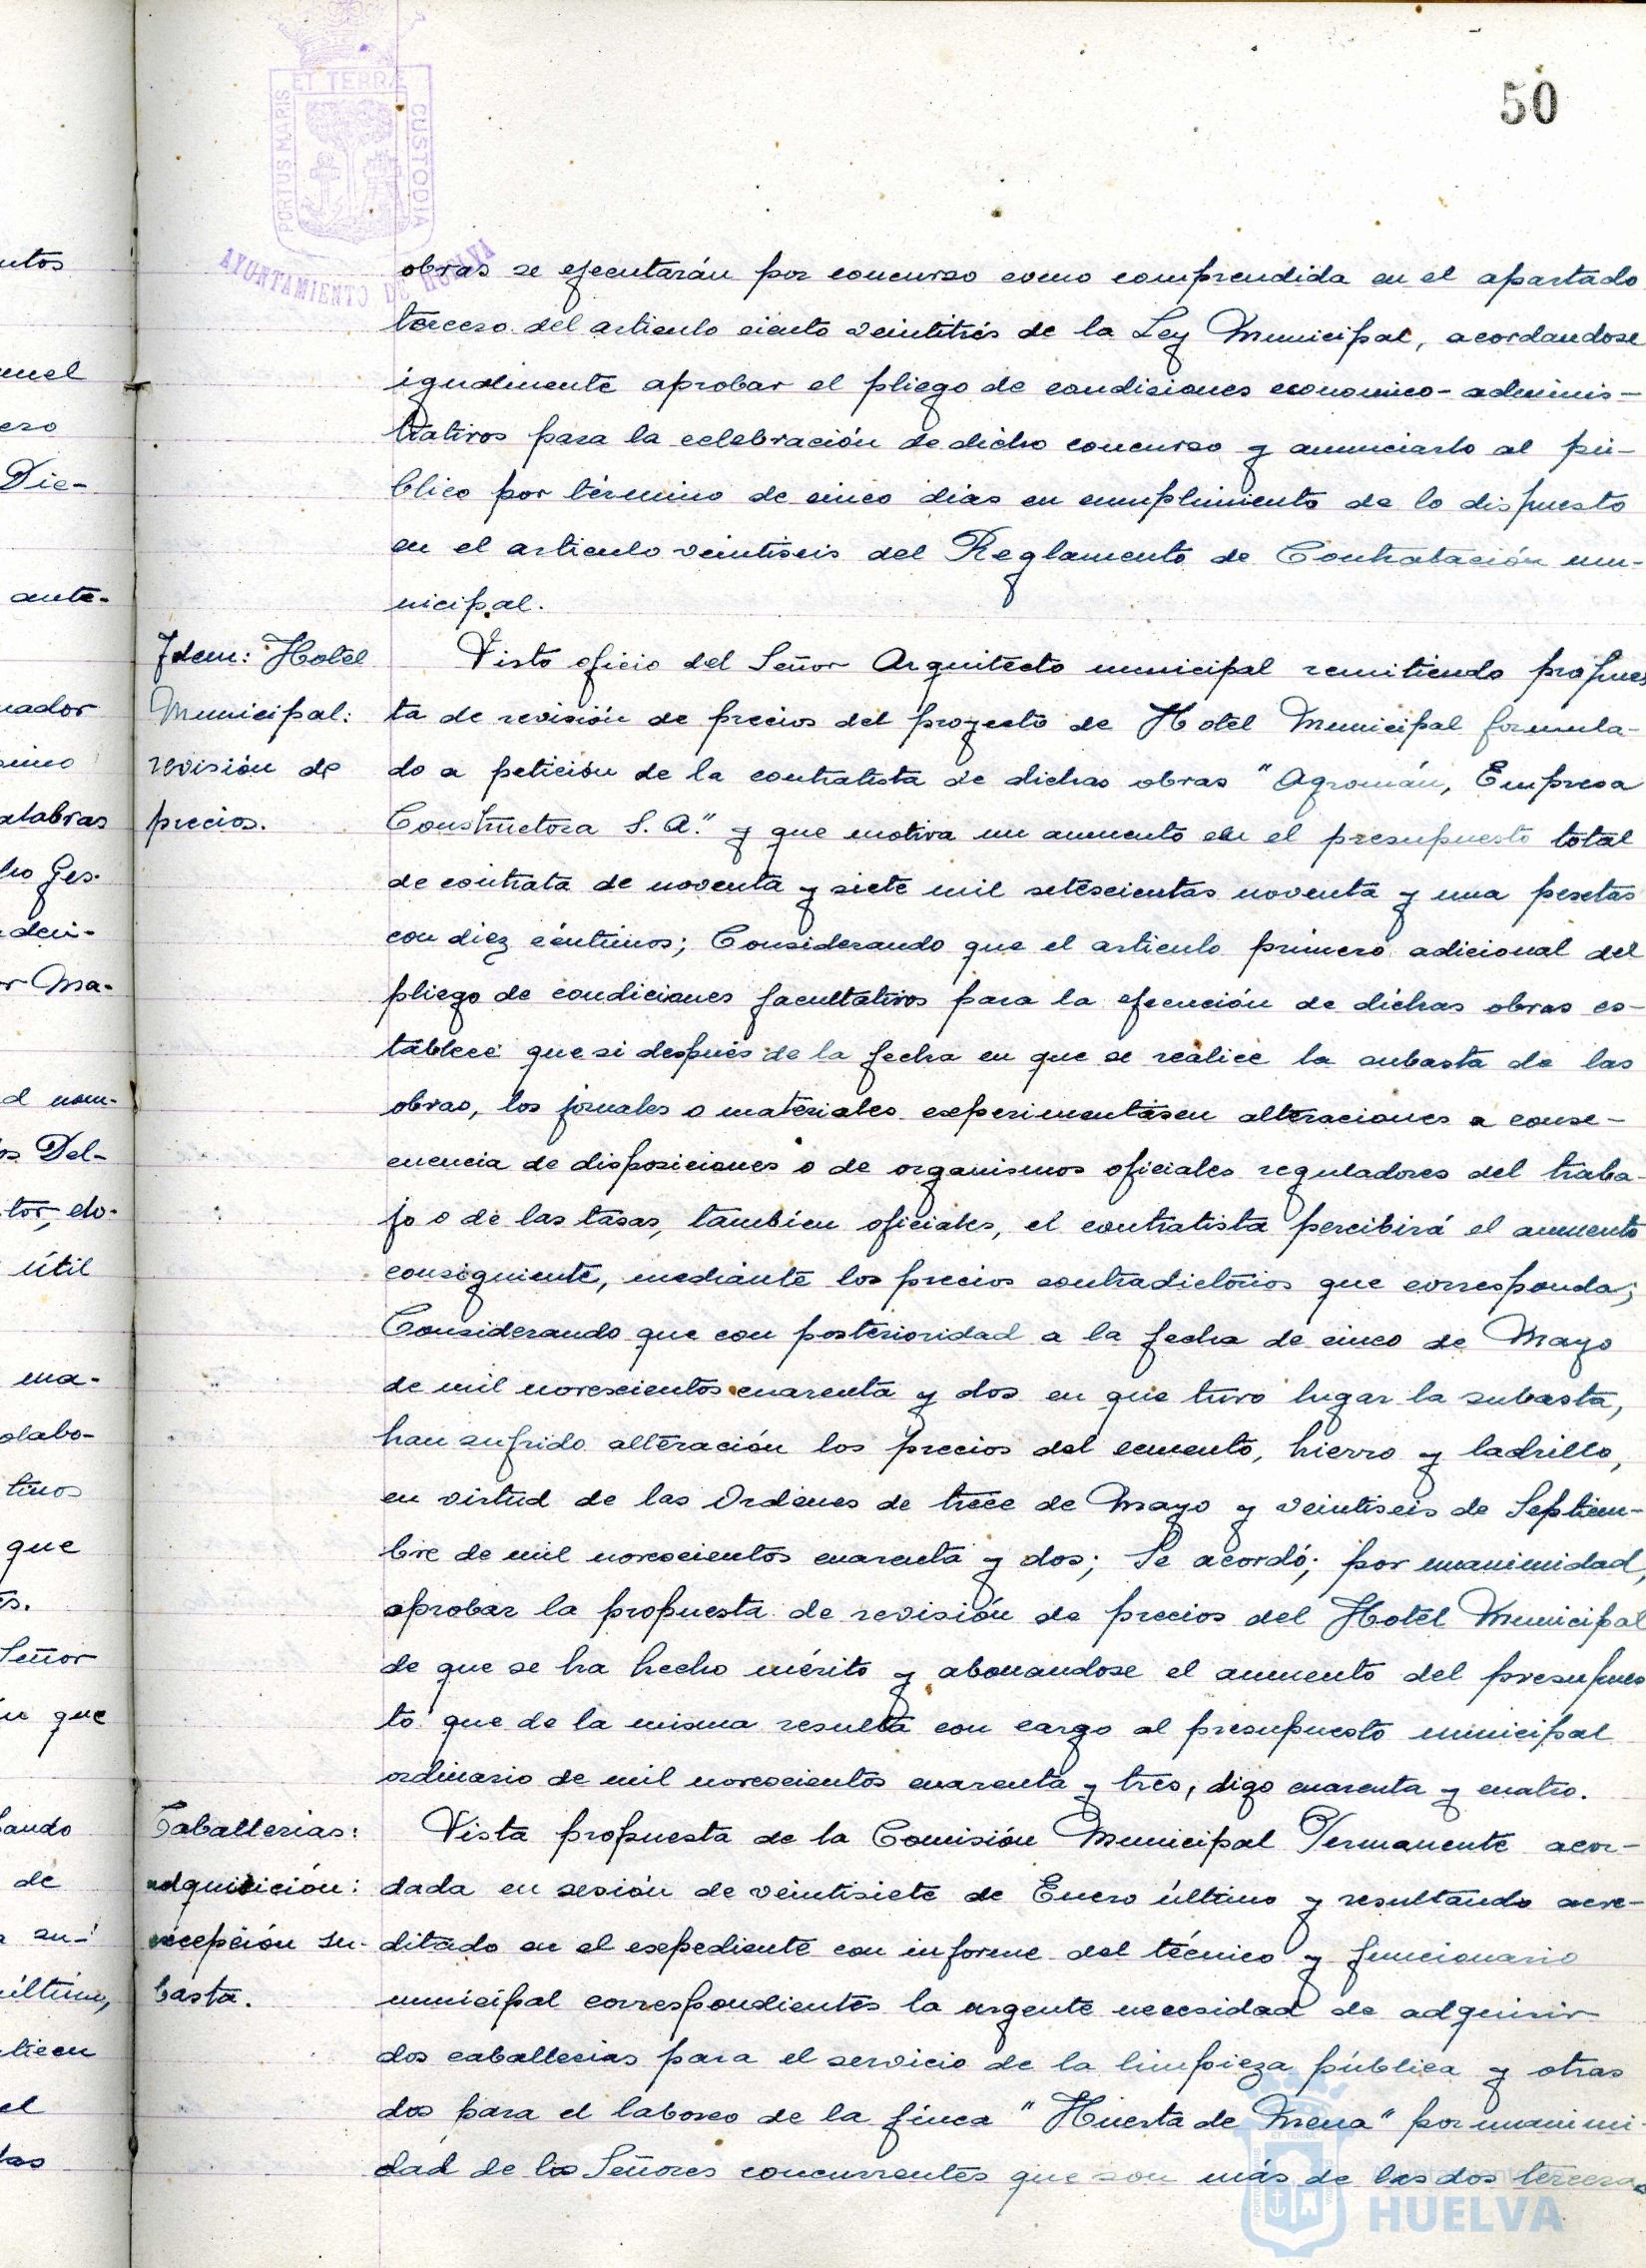 50
ET TERRÆ
PORTUS MARIS
CUSTODIA
AYUNTAMIENTO DE HUELVA
obras se ejecutarán por concurso como comprendida en el apartado
tercero del articulo ciento veintitrés de la Ley Municipal, acordandose
igualmente aprobar el pliego de condiciones economico-adminis-
trativos para la celebración de dicho concurso y anunciarlo al pú-
blico por término de cinco dias en cumplimiento de lo dispuesto
en el articulo veintiseis del Reglamento de Contratación mu-
nicipal.
Idem: Hotel
Municipal:
revisión de
precios.
Visto oficio del Señor Arquitecto municipal remitiendo propues
ta de revisión de precios del proyecto de Hotel Municipal formula-
do a petición de la contratista de dichas obras "Agromán, Empresa
Constructora S. A." y que motiva un aumento en el presupuesto total
de contrata de noventa y siete mil setescientas noventa y una pesetas
con diez céntimos; Considerando que el articulo primero adicional del
pliego de condiciones facultativos para la ejecución de dichas obras es-
tablece que si después de la fecha en que se realice la subasta de las
obras, los jornales o materiales experimentasen alteraciones a conse-
cuencia de disposiciones o de organismos oficiales reguladores del traba-
jo o de las tasas, tambien oficiales, el contratista percibirá el aumento
consiguiente, mediante los precios contradictorios que corresponda;
Considerando que con posterioridad a la fecha de cinco de Mayo
de mil novescientos cuarenta y dos en que tuvo lugar la subasta,
han sufrido alteración los precios del cemento, hierro y ladrillo,
en virtud de las Ordenes de trece de Mayo y veintiseis de Septiem-
bre de mil novescientos cuarenta y dos; Se acordó; por unanimidad,
aprobar la propuesta de revisión de precios del Hotel Municipal
de que se ha hecho mérito y abonandose el aumento del presupues
to que de la misma resulta con cargo al presupuesto municipal
ordinario de mil novescientos cuarenta y tres, digo cuarenta y cuatro.
Caballerias:
adquisición:
excepción su-
basta.
Vista propuesta de la Comisión Municipal Permanente acor-
dada en sesión de veintisiete de Enero último y resultando acre-
ditado en el expediente con informe del técnico y funcionario
municipal correspondientes la urgente necesidad de adquirir
dos caballerias para el servicio de la limpieza pública y otras
dos para el laboreo de la finca "Huerta de Mena" por unanimi-
dad de los Señores concurrentes que son más de las dos terceras
HUELVA